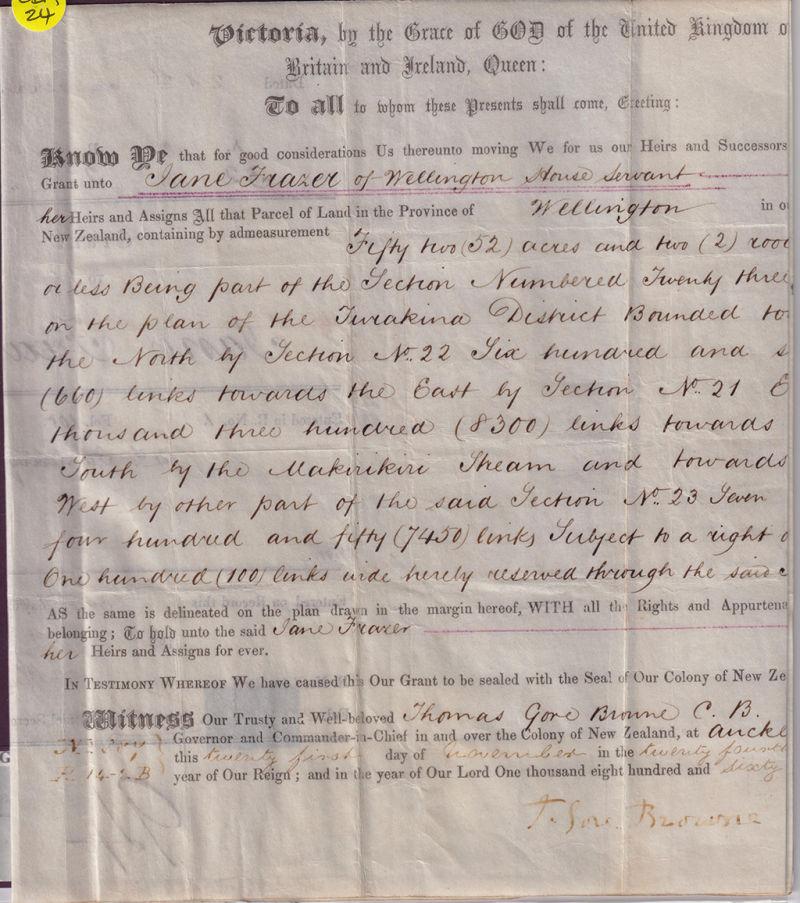 24
Victoria, by the Grace of GOD of the United Kingdom o
Britain and Ireland, Queen:
To all to whom these Presents shall come, Greeting:
Know Ye that for good considerations Us thereunto moving We for us our Heirs and Successors
Grant unto Jane Frazer of Wellington House Servant
her Heirs and Assigns All that Parcel of Land in the Province of Wellington in o
New Zealand, containing by admeasurement Fifty two (52) acres and two (2) roo
or less Being part of the Section Numbered Twenty three
on the plan of the Turakina District Bounded to
the North by Section No. 22 Six hundred and s
(660) links towards the East by Section No. 21 E
thousand three hundred (8300) links towards
South by the Makirikiri Stream and towards
West by other part of the said Section No. 23 Seven
four hundred and fifty (7450) links Subject to a right o
One hundred (100) links wide hereby reserved through the said
AS the same is delineated on the plan drawn in the margin hereof, WITH all the Rights and Appurtena
belonging; To hold unto the said Jane Frazer
her Heirs and Assigns for ever.
IN TESTIMONY WHEREOF We have caused this Our Grant to be sealed with the Seal of Our Colony of New Ze
Witness Our Trusty and Well-beloved Thomas Gore Browne C. B.
Governor and Commander-in-Chief in and over the Colony of New Zealand, at Auckl
this twenty first day of November in the twenty fourth
year of Our Reign; and in the year of Our Lord One thousand eight hundred and sixty
T. Gore Browne